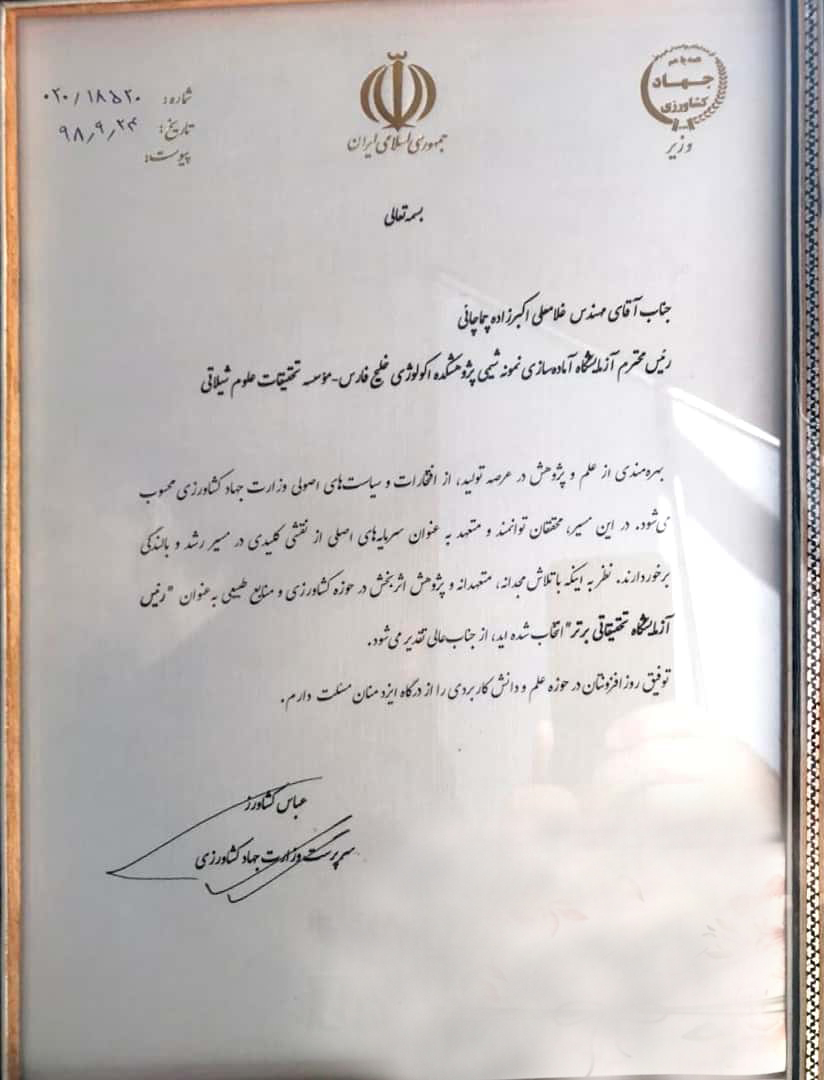 همه با هم
جهاد
کشاورزی
وزیر
جمهوری اسلامی ایران
شماره: ۰۲۰/۱۸۵۲۰
تاریخ: ۹۸,۹,۲۴
پیوست:
بسمه تعالی
جناب آقای مهندس غلامعلی اکبرزاده چماچائی
رئیس محترم آزمایشگاه آماده‌سازی نمونه شیمی پژوهشکده اکولوژی خلیج فارس-مؤسسه تحقیقات علوم شیلاتی
بهره‌مندی از علم و پژوهش در عرصه تولید، از افتخارات و سیاست‌های اصولی وزارت جهاد کشاورزی محسوب
می‌شود. در این مسیر، محققان توانمند و متعهد به عنوان سرمایه‌های اصلی از نقشی کلیدی در مسیر رشد و بالندگی
برخوردارند. نظر به اینکه با تلاش مجدانه، متعهدانه و پژوهش اثربخش در حوزه کشاورزی و منابع طبیعی به عنوان "رئیس
آزمایشگاه تحقیقاتی برتر" انتخاب شده اید، از جناب‌عالی تقدیر می‌شود.
توفیق روزافزونتان در حوزه علم و دانش کاربردی را از درگاه ایزد منان مسئلت دارم.
عباس کشاورز
سرپرست وزارت جهاد کشاورزی